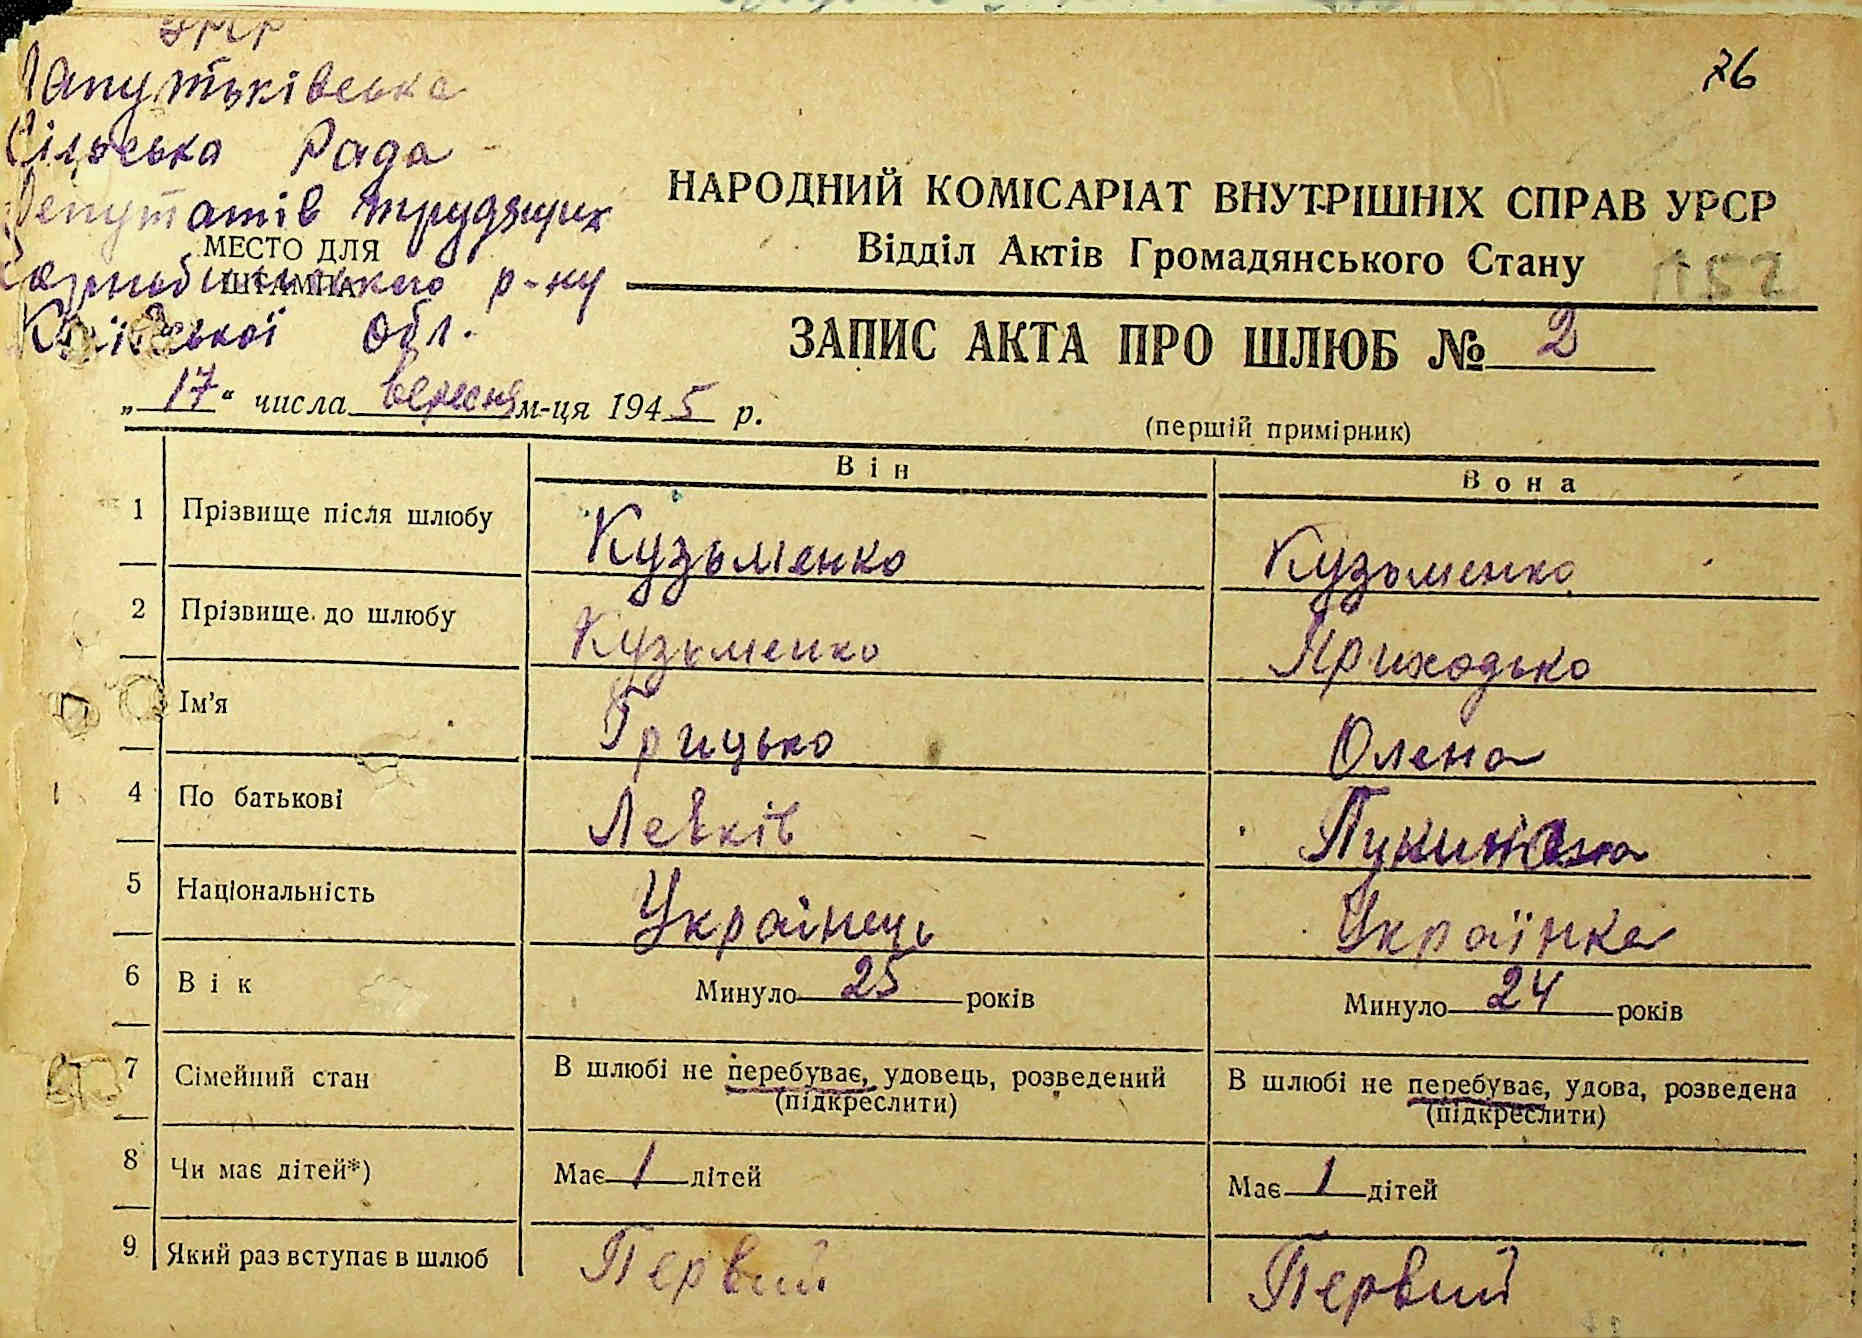 УРСР
76
Лапутьківська
Сільська Рада
Депутатів трудящих
МЕСТО ДЛЯ
ШТАМПА
р-ну
Київської обл.
НАРОДНИЙ КОМІСАРІАТ ВНУТРІШНІХ СПРАВ УРСР
Відділ Актів Громадянського Стану
ЗАПИС АКТА ПРО ШЛЮБ № 2
„17“ числа вересня м-ця 1945 р.
(перший примірник)
Він Вона
1 Прізвище після шлюбу Кузьменко Кузьменко
2 Прізвище до шлюбу Кузьменко Приходько
Ім'я Грицько Олена
4 По батькові Левків
5 Національність Українець Українка
6 Вік Минуло 25 років Минуло 24 років
7 Сімейний стан В шлюбі не перебуває, удовець, розведений В шлюбі не перебуває, удова, розведена
(підкреслити) (підкреслити)
8 Чи має дітей*) Має 1 дітей Має 1 дітей
9 Який раз вступає в шлюб Первий Первий